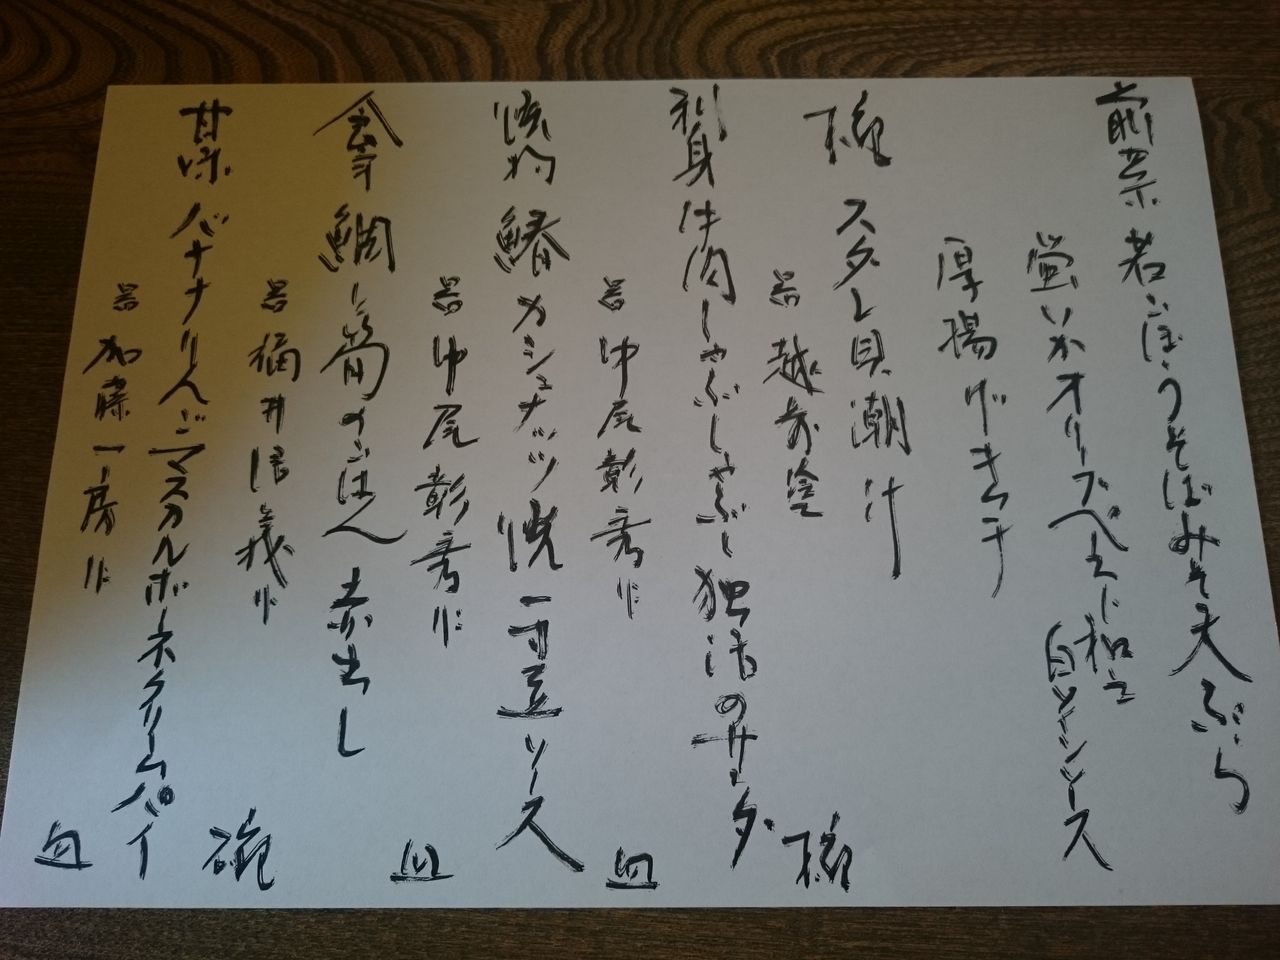 前菜 若ごぼうそばみそ天ぷら
蛍いかオリーブペースト和え
白ワインソース
厚揚げキムチ
椀 スダレ貝潮汁
器 越前塗 椀
刺身 牛肉しゃぶしゃぶ 独活のサラダ
器 中尾彰秀作 皿
焼物 鰆カシュナッツ焼 一寸豆ソース
器 中尾彰秀作 皿
食事 鯛と筍のごはん 赤出し
器 福井
義作 碗
甘味 バナナりんごマスカルポーネクリームパイ
器 加藤一房作 皿